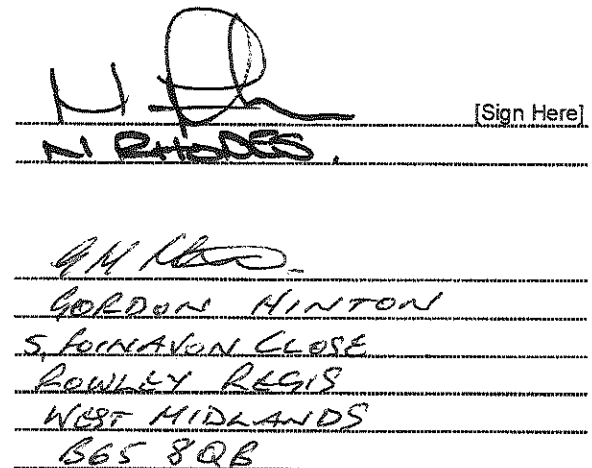 [Sign Here]
N RHODES.
GORDON HINTON
5, FOINAVON CLOSE
ROWLEY REGIS
WEST MIDLANDS
B65 8QB